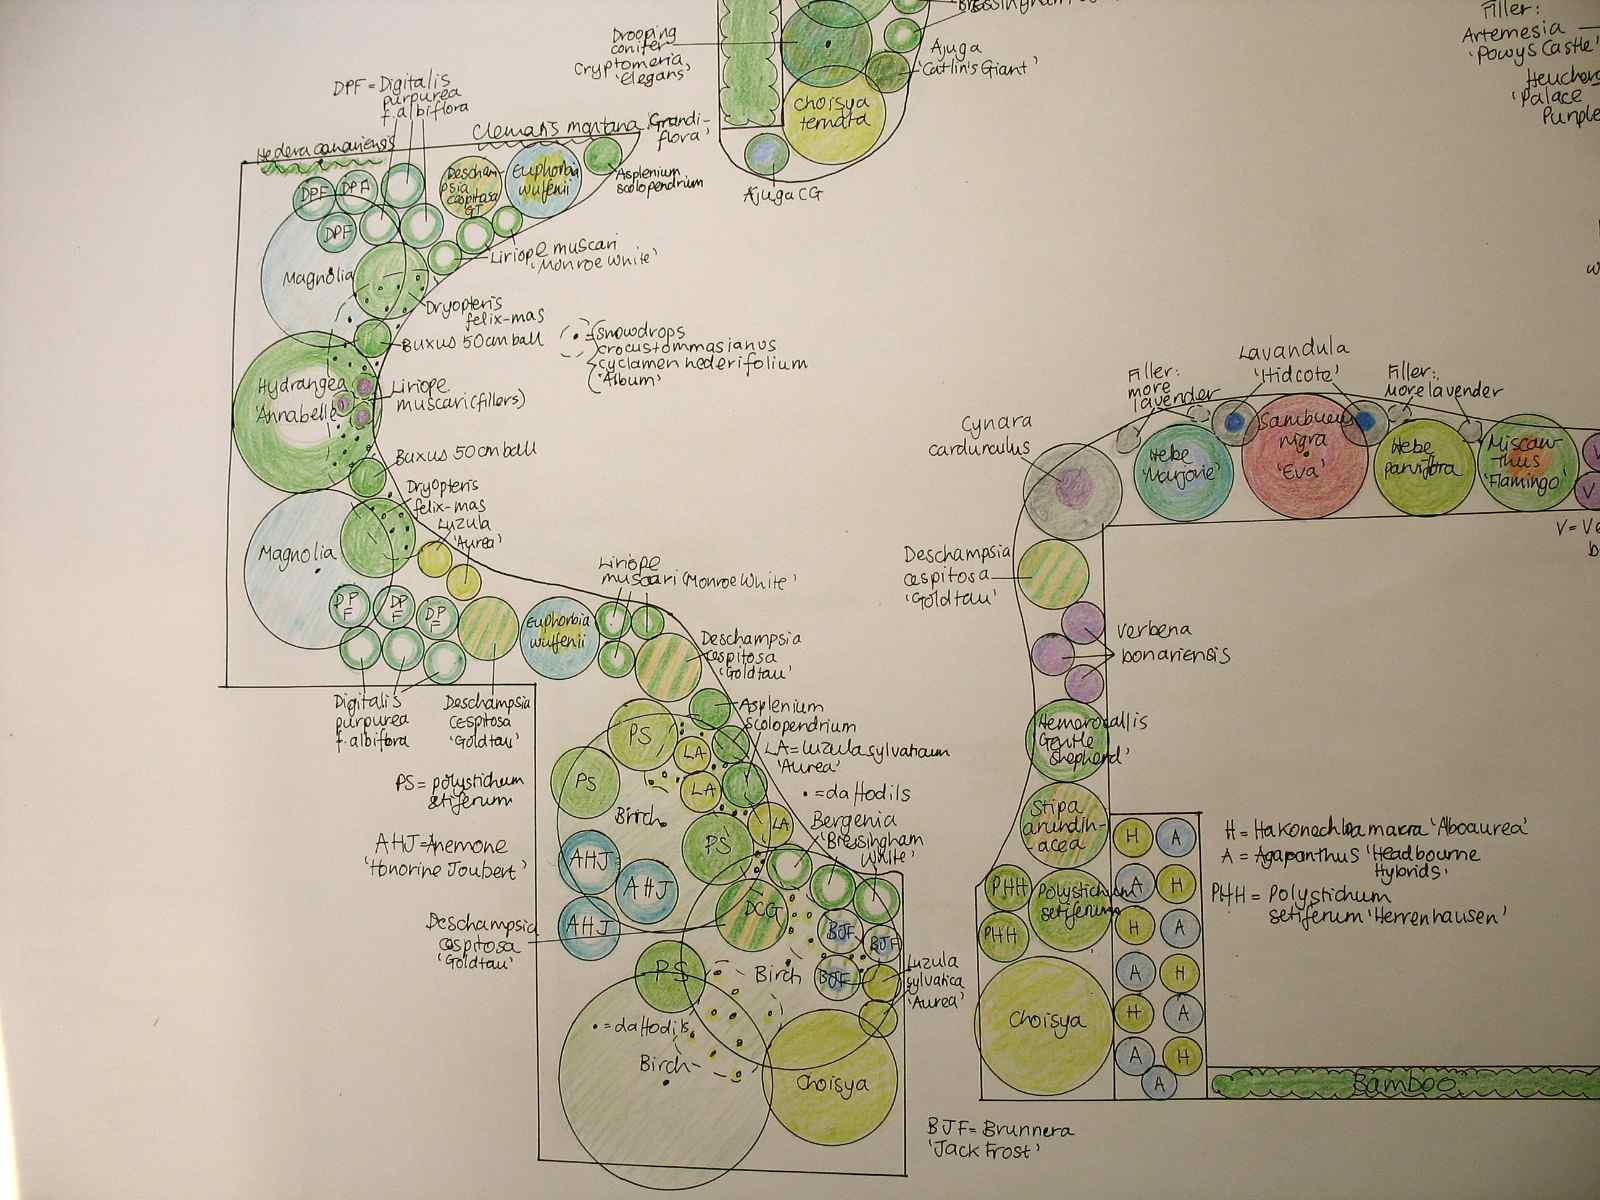 Drooping
conifer
Cryptomeria
'Elegans'
Choisya
ternata
Ajuga
'Catlin's Giant'
Ajuga CG
Filler:
Artemesia
'Powys Castle'
'Palace
Purple
DPF = Digitalis
purpurea
f. albiflora
Hedera canariensis
Clematis montana 'Grandi-
flora'
DPF
DPF
DPF
Descham
psia
cespitosa
GT
Euphorbia
wulfenii
Asplenium
scolopendrium
Liriope muscari
'Monroe White'
Magnolia
Dryopteris
felix-mas
Buxus 50cm ball
Snowdrops
crocus tommasianus
cyclamen hederifolium
'Album'
Hydrangea
'Annabelle'
Liriope
muscari (fillers)
Buxus 50cm ball
Dryopteris
felix-mas
Luzula
'Aurea'
Magnolia
DP
F
DP
F
DP
F
Euphorbia
wulfenii
Liriope
muscari (Monroe White'
Deschampsia
cespitosa
'Goldtau'
Digitalis
purpurea
f. albiflora
Deschampsia
cespitosa
'Goldtau'
Asplenium
scolopendrium
LA = Luzula sylvatica
'Aurea'
• = daffodils
PS = polystichum
setiferum
PS
PS
LA
LA
LA
PS
Birch
Bergenia
'Bressingham
White'
AHJ = Anemone
'Honorine Joubert'
AHJ
AHJ
AHJ
DCG
Deschampsia
cespitosa
'Goldtau'
BJF
BJF
BJF
PS
Birch
Luzula
sylvatica
'Aurea'
• = daffodils
Birch
Choisya
BJF = Brunnera
'Jack Frost'
Cynara
cardunculus
Filler:
more
lavender
Lavandula
'Hidcote'
Filler:
more lavender
Hebe
'Marjorie'
Sambucus
nigra
'Eva'
Hebe
parviflora
Miscan-
thus
'Flamingo'
V
V
V = Ve
b
Deschampsia
cespitosa
'Goldtau'
Verbena
bonariensis
Hemerocallis
Gentle
Shepherd'
Stipa
arundin-
acea
PHH
PHH
Polystichum
setiferum
Choisya
H
A
A
H
H
A
A
H
H
A
A
H
A
H = Hakonechloa macra 'Alboaurea'
A = Agapanthus 'Headbourne
Hybrids'
PHH = Polystichum
setiferum 'Herrenhausen'
Bamboo